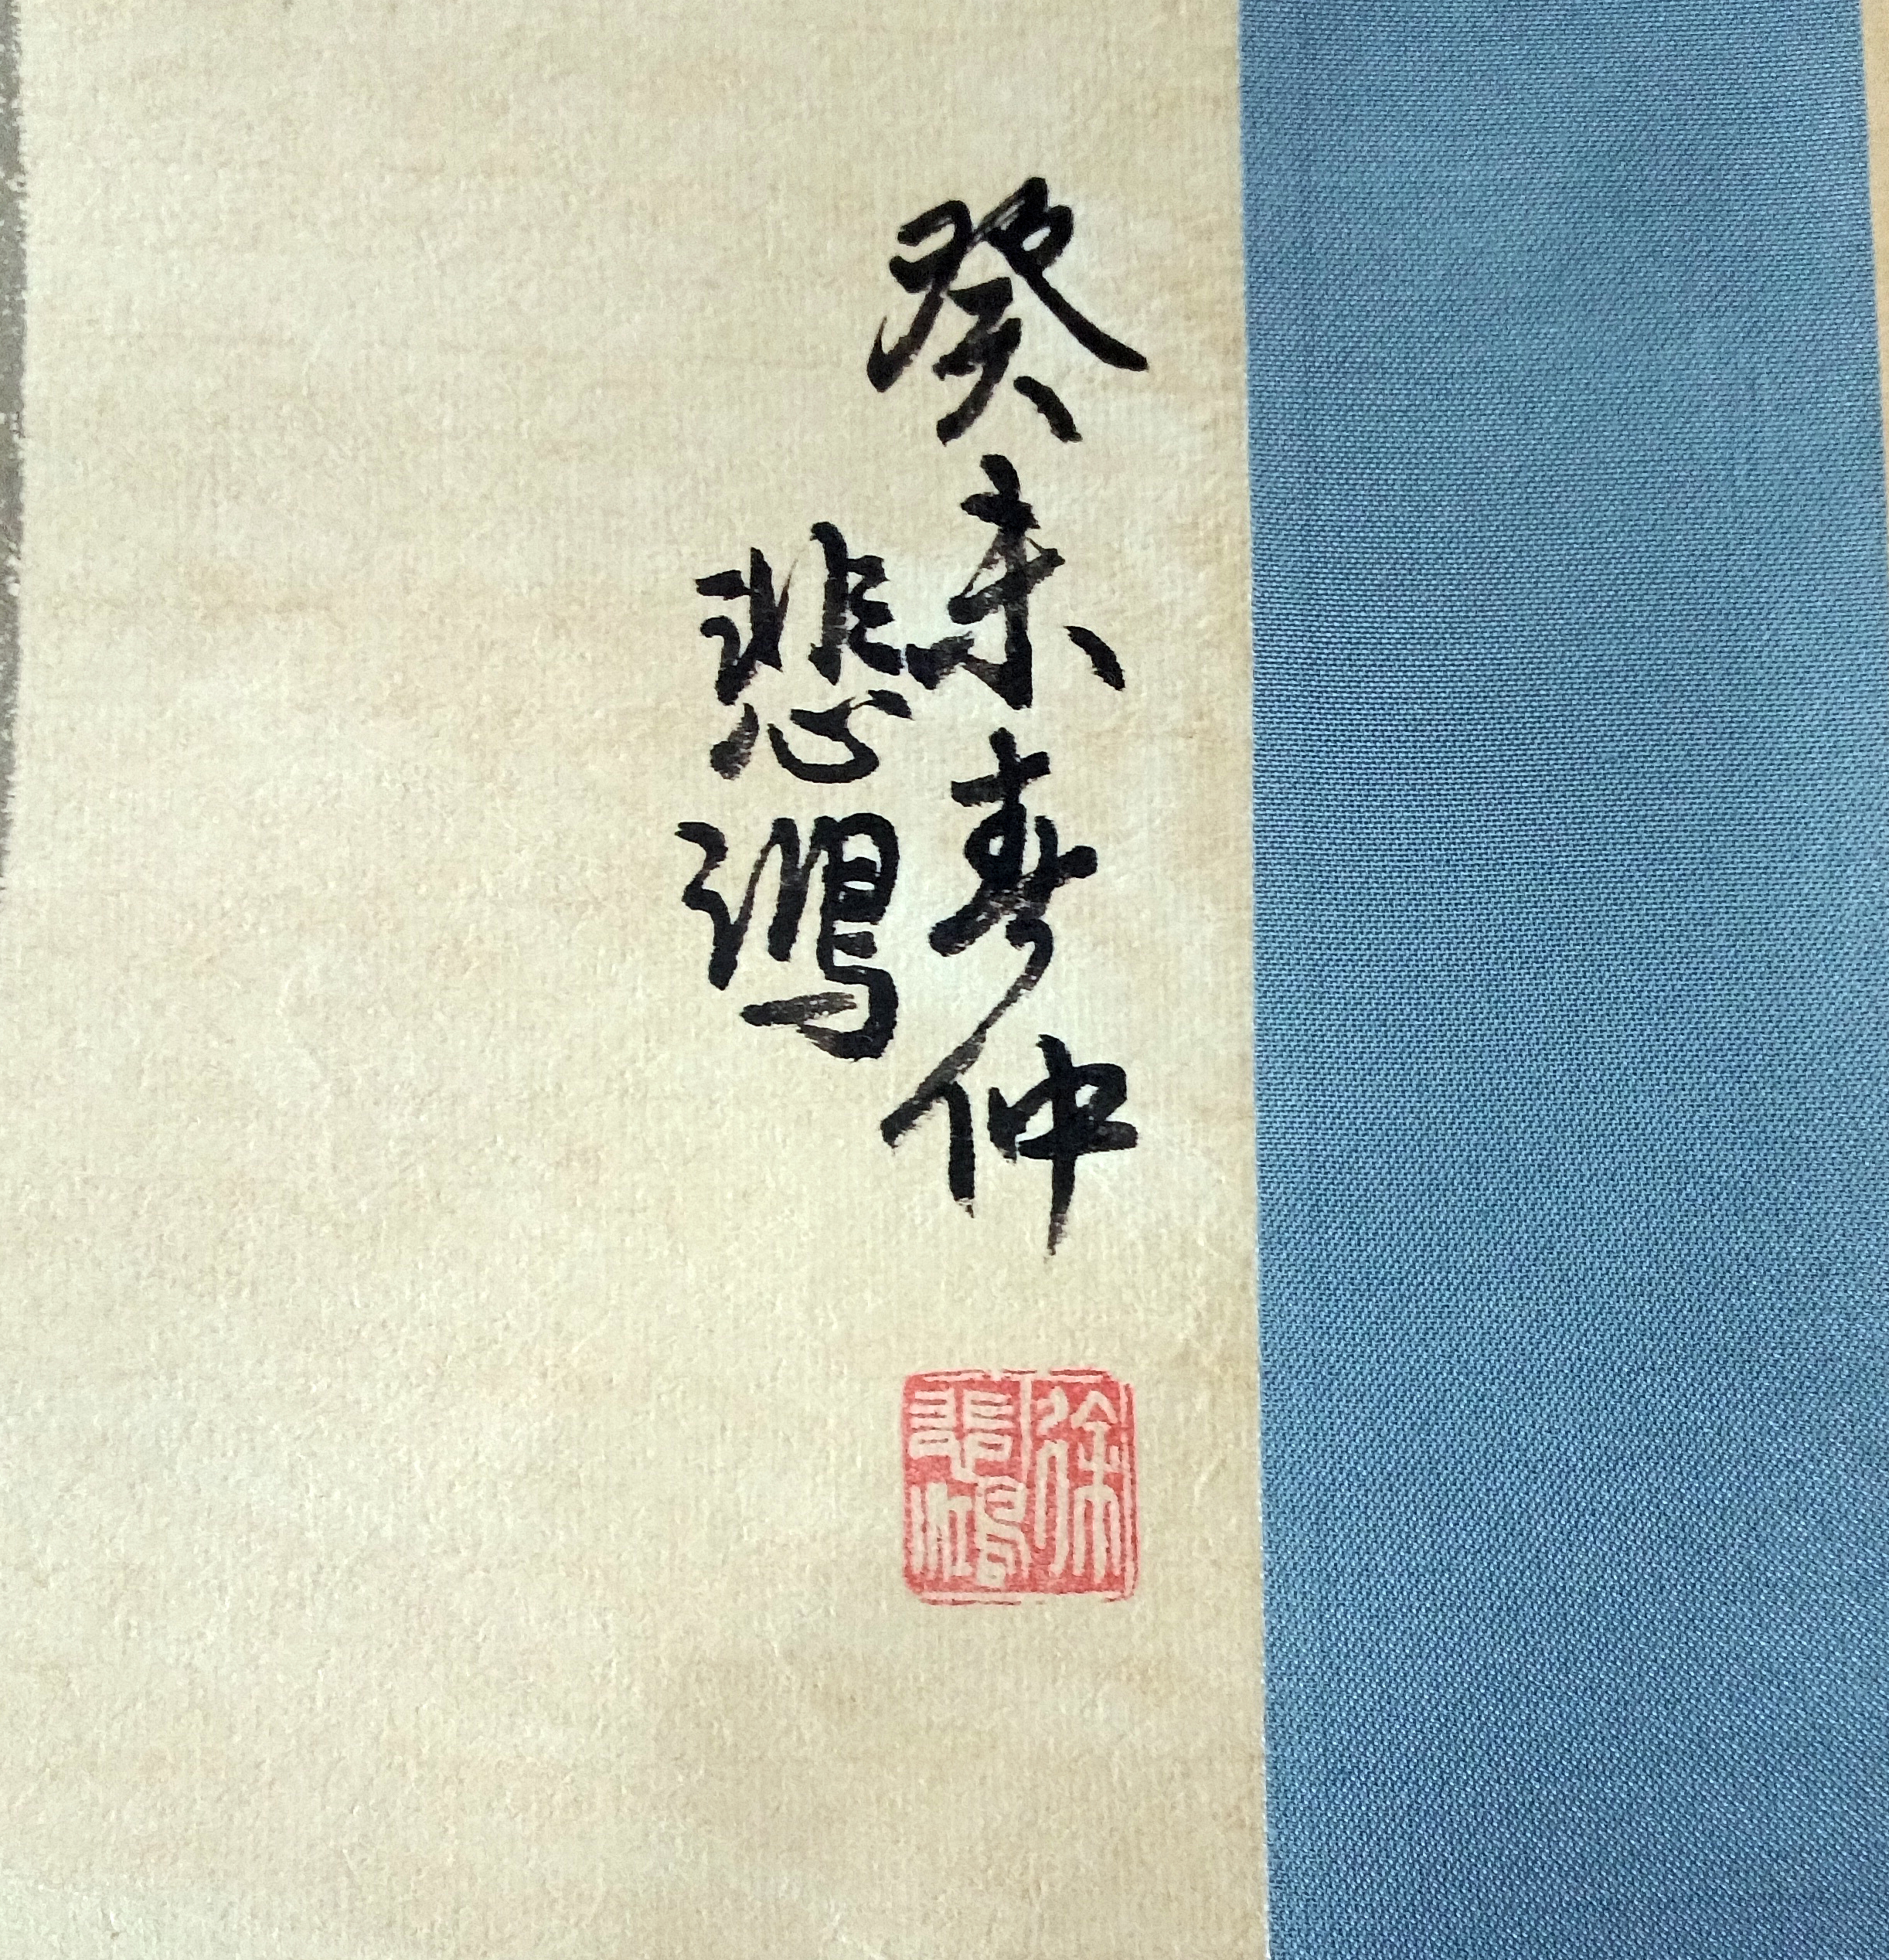 癸未春仲
悲鴻
徐
悲鴻